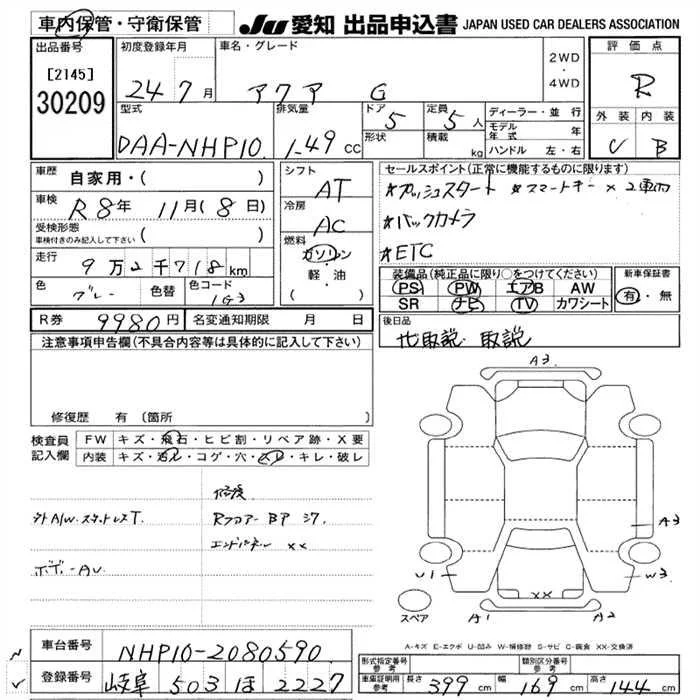 車内保管・守衛保管
JU 愛知 出品申込書 JAPAN USED CAR DEALERS ASSOCIATION
出品番号
[2145]
30209
初度登録年月
24 7月
車名・グレード
アクア G
2WD
・
4WD
評価点
R
外装 内装
C B
型式
DAA-NHP10
排気量
1.49 CC
ドア 5
形状
定員 5人
積載 kg
ディーラー・並行
モデル年式 年
ハンドル 左・右
車歴
自家用・( )
車検
R8年 11月(8日)
受検形態
車検付きのみ記入して下さい
( )
走行
9万2千718km
色
グレー
色替
色コード
1G3
シフト
AT
冷房
AC
燃料
ガソリン
軽・油
( )
セールスポイント(正常に機能するものに限ります)
*プッシュスタート *スマートキー×2車内
*バックカメラ
*ETC
装備品(純正品に限り○をつけてください)
PS PW エアB AW
SR ナビ TV カワシート
新車保証書
有・無
R券 9980円
名変通知期限 月 日
後日品
地取説 取説
注意事項申告欄(不具合内容等は具体的に記入して下さい)
修復歴 有 (箇所
検査員
記入欄
FW キズ・飛石・ヒビ割・リペア跡・X要
内装 キズ・汚レ・コゲ・穴・スレ・キレ・破レ
修復
外A/W.スタッドレスT.
RフロアーBP
エンドパネル ××
ボデーAU
A3
A3
U1
W3
××
A1
A2
スペア
A-キズ E-エクボ U-凹み W-補修跡 S-サビ C-腐食 XX-交換済
車台番号
NHP10-2080590
登録番号
岐阜 503 ほ 2227
形式指定番号
参考
類別区分番号
参考
車庫証明用
参考
長さ 399 cm
幅 169 cm
高さ 144 cm